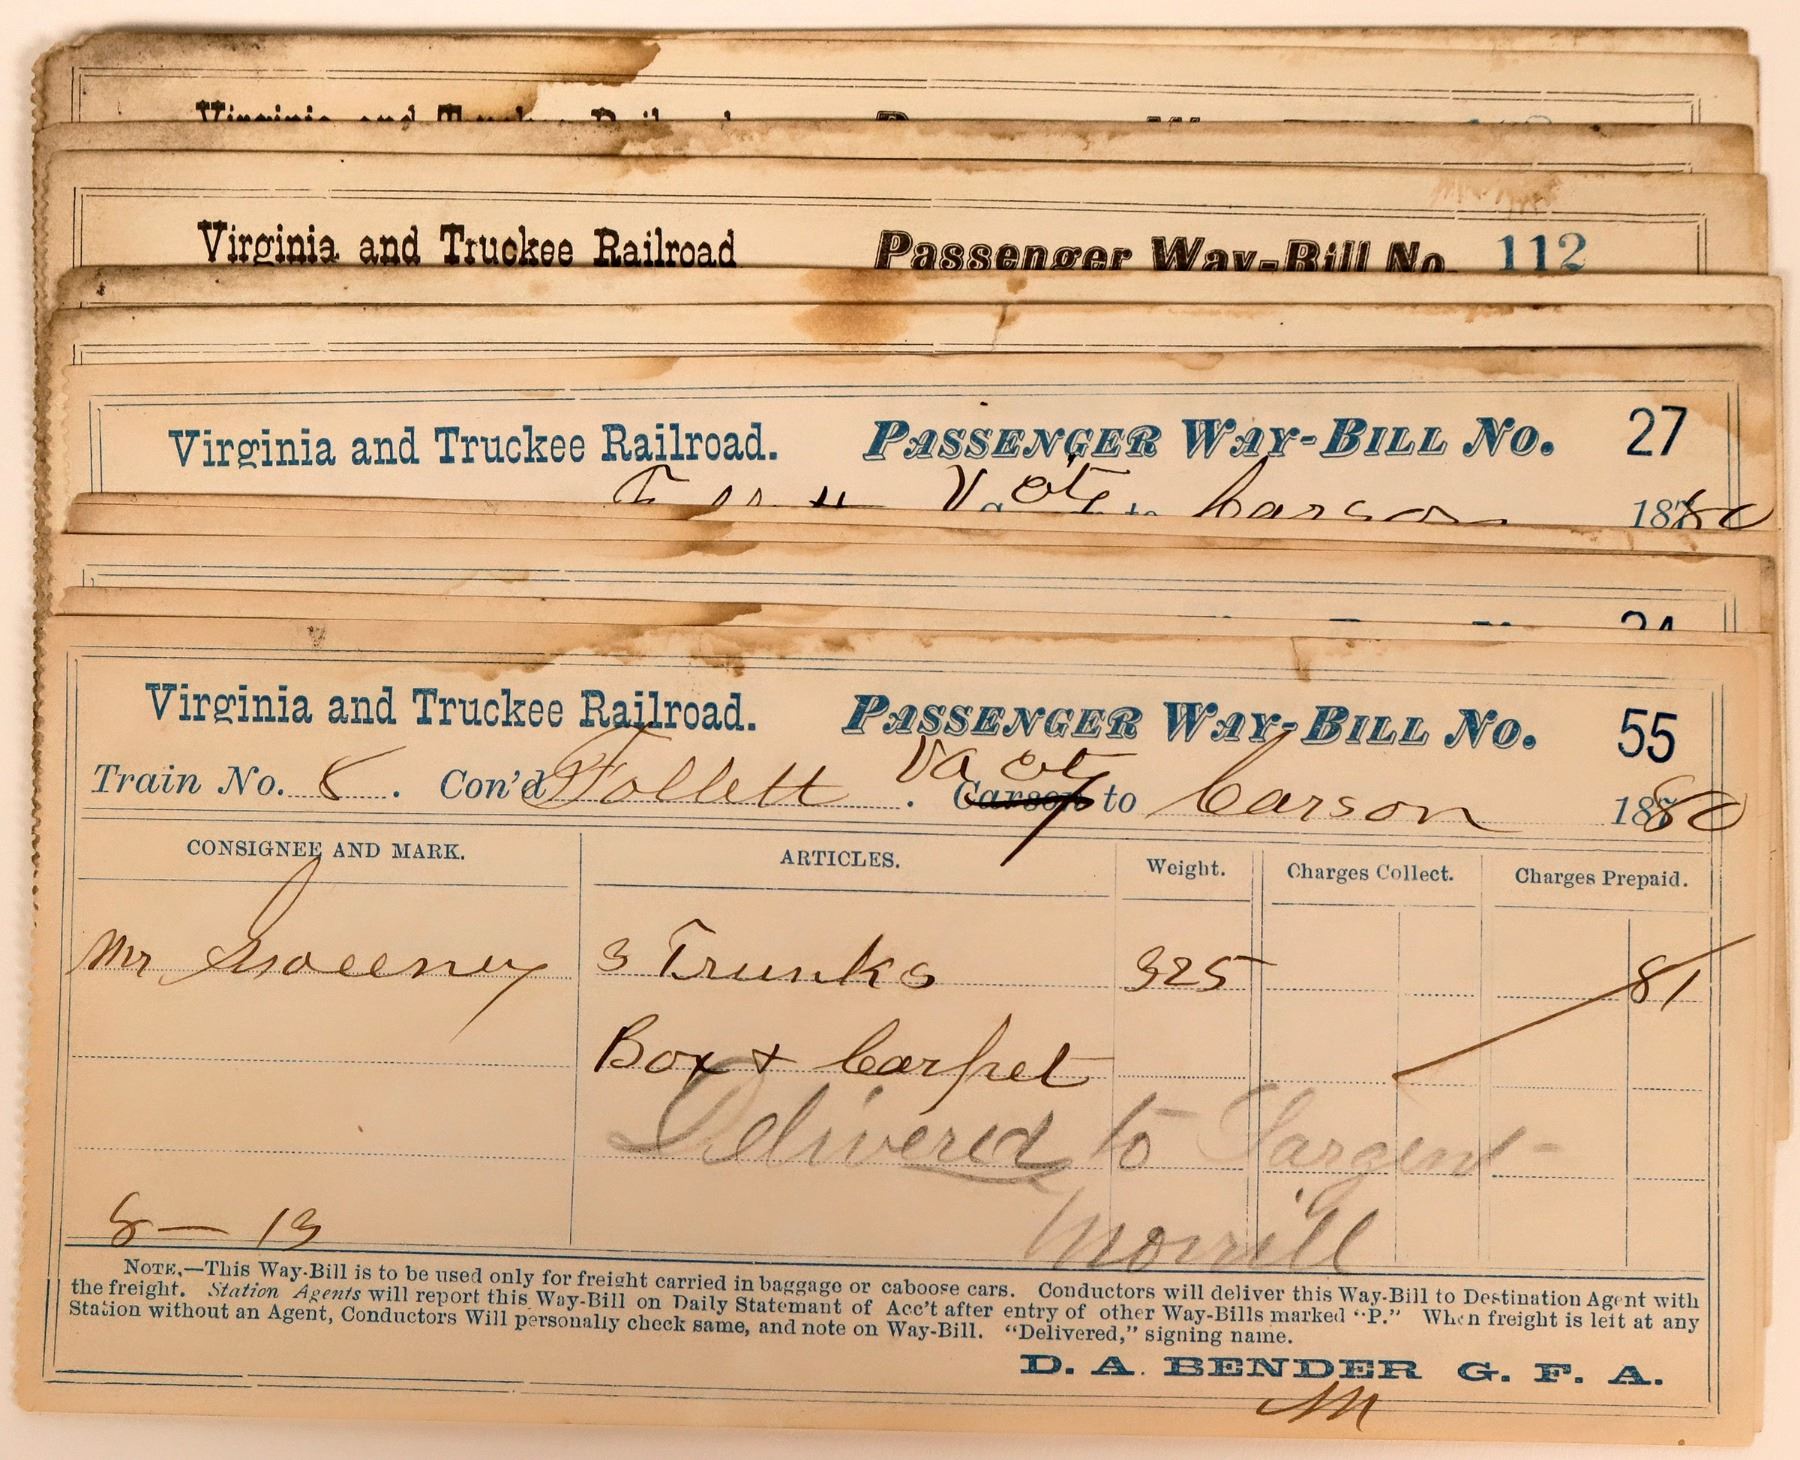 Virginia and Truckee Railroad
Virginia and Truckee Railroad Passenger Way-Bill No. 112
Virginia and Truckee Railroad. PASSENGER WAY-BILL No. 27
Va City to Carson 1880
Virginia and Truckee Railroad. PASSENGER WAY-BILL No. 55
Train No. 8. Con'd Follett. Va City Carson to Carson 1880
CONSIGNEE AND MARK. ARTICLES. Weight. Charges Collect. Charges Prepaid.
Mr Sweeney 3 Trunks 325 81
Box & Carpet
Delivered to Sargent
Morrill
8—13
NOTE,—This Way-Bill is to be used only for freight carried in baggage or caboose cars. Conductors will deliver this Way-Bill to Destination Agent with
the freight. Station Agents will report this Way-Bill on Daily Statemant of Acc't after entry of other Way-Bills marked “P.” When freight is left at any
Station without an Agent, Conductors Will personally check same, and note on Way-Bill. “Delivered,” signing name.
D. A. BENDER G. F. A.
M